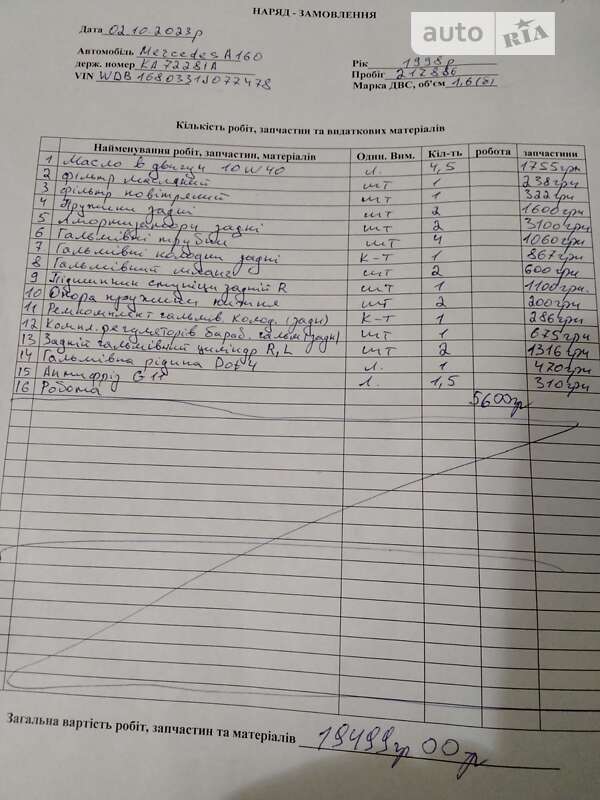 НАРЯД - ЗАМОВЛЕННЯ
auto RIA
Дата 02.10.2023р
Автомобіль Mercedes A160 Рік 1998р
держ. номер КА7228ІА Пробіг 212886
VIN WDB1680331J072478 Марка ДВС, об'єм 1,6(б)
Кількість робіт, запчастин та видаткових матеріалів
Найменування робіт, запчастин, матеріалів Один. Вим. Кіл-ть робота запчастини
1 Масло в двигун 10W40 л. 4,5 1755грн
2 Фільтр масляний шт 1 238грн
3 Фільтр повітряний шт 1 322грн
4 Пружини задні шт 2 1600грн
5 Амортизатори задні шт 2 3100грн
6 Гальмівні трубки шт 4 1060грн
7 Гальмівні колодки задні К-Т 1 867грн
8 Гальмівний шланг шт 2 600грн
9 Підшипники ступиці задній R шт 1 1100грн.
10 Опора пружини нижня шт 2 200грн
11 Ремкомплект гальмів. колод. (задн) К-Т 1 286грн
12 Компл. регуляторів бараб. гальм (задн) шт 1 675грн
13 Задній гальмівний циліндр R,L шт 2 1316грн
14 Гальмівна рідина Dot 4 л. 1 470грн
15 Антифріз G11 Л. 1,5 310грн
16 Робота 5600гр
Загальна вартість робіт, запчастин та матеріалів 19499гр 00гр